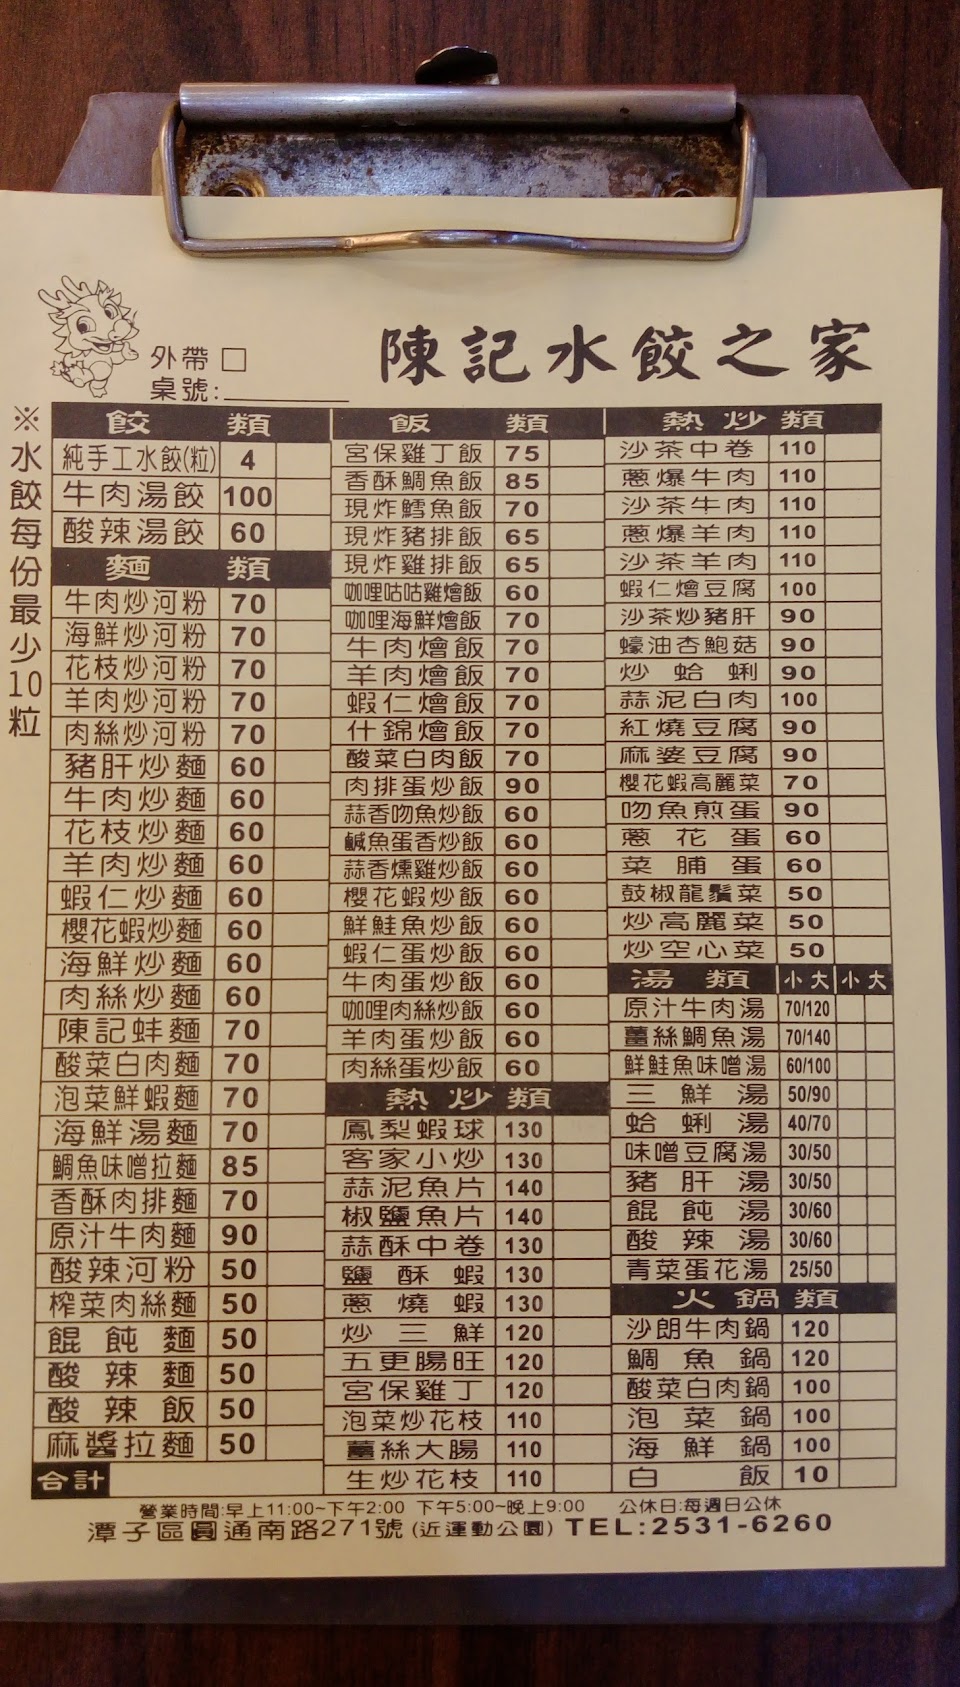 陳記水餃之家
外帶□
桌號:
※水餃每份最少10粒
餃類
純手工水餃(粒) 4
牛肉湯餃 100
酸辣湯餃 60
麵類
牛肉炒河粉 70
海鮮炒河粉 70
花枝炒河粉 70
羊肉炒河粉 70
肉絲炒河粉 70
豬肝炒麵 60
牛肉炒麵 60
花枝炒麵 60
羊肉炒麵 60
蝦仁炒麵 60
櫻花蝦炒麵 60
海鮮炒麵 60
肉絲炒麵 60
陳記蚌麵 70
酸菜白肉麵 70
泡菜鮮蝦麵 70
海鮮湯麵 70
鯛魚味噌拉麵 85
香酥肉排麵 70
原汁牛肉麵 90
酸辣河粉 50
榨菜肉絲麵 50
餛飩麵 50
酸辣麵 50
酸辣飯 50
麻醬拉麵 50
合計
飯類
宮保雞丁飯 75
香酥鯛魚飯 85
現炸鱈魚飯 70
現炸豬排飯 65
現炸雞排飯 65
咖哩咕咕雞燴飯 60
咖哩海鮮燴飯 70
牛肉燴飯 70
羊肉燴飯 70
蝦仁燴飯 70
什錦燴飯 70
酸菜白肉飯 70
肉排蛋炒飯 90
蒜香吻魚炒飯 60
鹹魚蛋香炒飯 60
蒜香燻雞炒飯 60
櫻花蝦炒飯 60
鮮鮭魚炒飯 60
蝦仁蛋炒飯 60
牛肉蛋炒飯 60
咖哩肉絲炒飯 60
羊肉蛋炒飯 60
肉絲蛋炒飯 60
熱炒類
鳳梨蝦球 130
客家小炒 130
蒜泥魚片 140
椒鹽魚片 140
蒜酥中卷 130
鹽酥蝦 130
蔥燒蝦 130
炒三鮮 120
五更腸旺 120
宮保雞丁 120
泡菜炒花枝 110
薑絲大腸 110
生炒花枝 110
熱炒類
沙茶中卷 110
蔥爆牛肉 110
沙茶牛肉 110
蔥爆羊肉 110
沙茶羊肉 110
蝦仁燴豆腐 100
沙茶炒豬肝 90
蠔油杏鮑菇 90
炒蛤蜊 90
蒜泥白肉 100
紅燒豆腐 90
麻婆豆腐 90
櫻花蝦高麗菜 70
吻魚煎蛋 90
蔥花蛋 60
菜脯蛋 60
鼓椒龍鬚菜 50
炒高麗菜 50
炒空心菜 50
湯類 小 大 小 大
原汁牛肉湯 70/120
薑絲鯛魚湯 70/140
鮮鮭魚味噌湯 60/100
三鮮湯 50/90
蛤蜊湯 40/70
味噌豆腐湯 30/50
豬肝湯 30/50
餛飩湯 30/60
酸辣湯 30/60
青菜蛋花湯 25/50
火鍋類
沙朗牛肉鍋 120
鯛魚鍋 120
酸菜白肉鍋 100
泡菜鍋 100
海鮮鍋 100
白飯 10
營業時間:早上11:00~下午2:00 下午5:00~晚上9:00 公休日:每週日公休
潭子區圓通南路271號(近運動公園) TEL:2531-6260